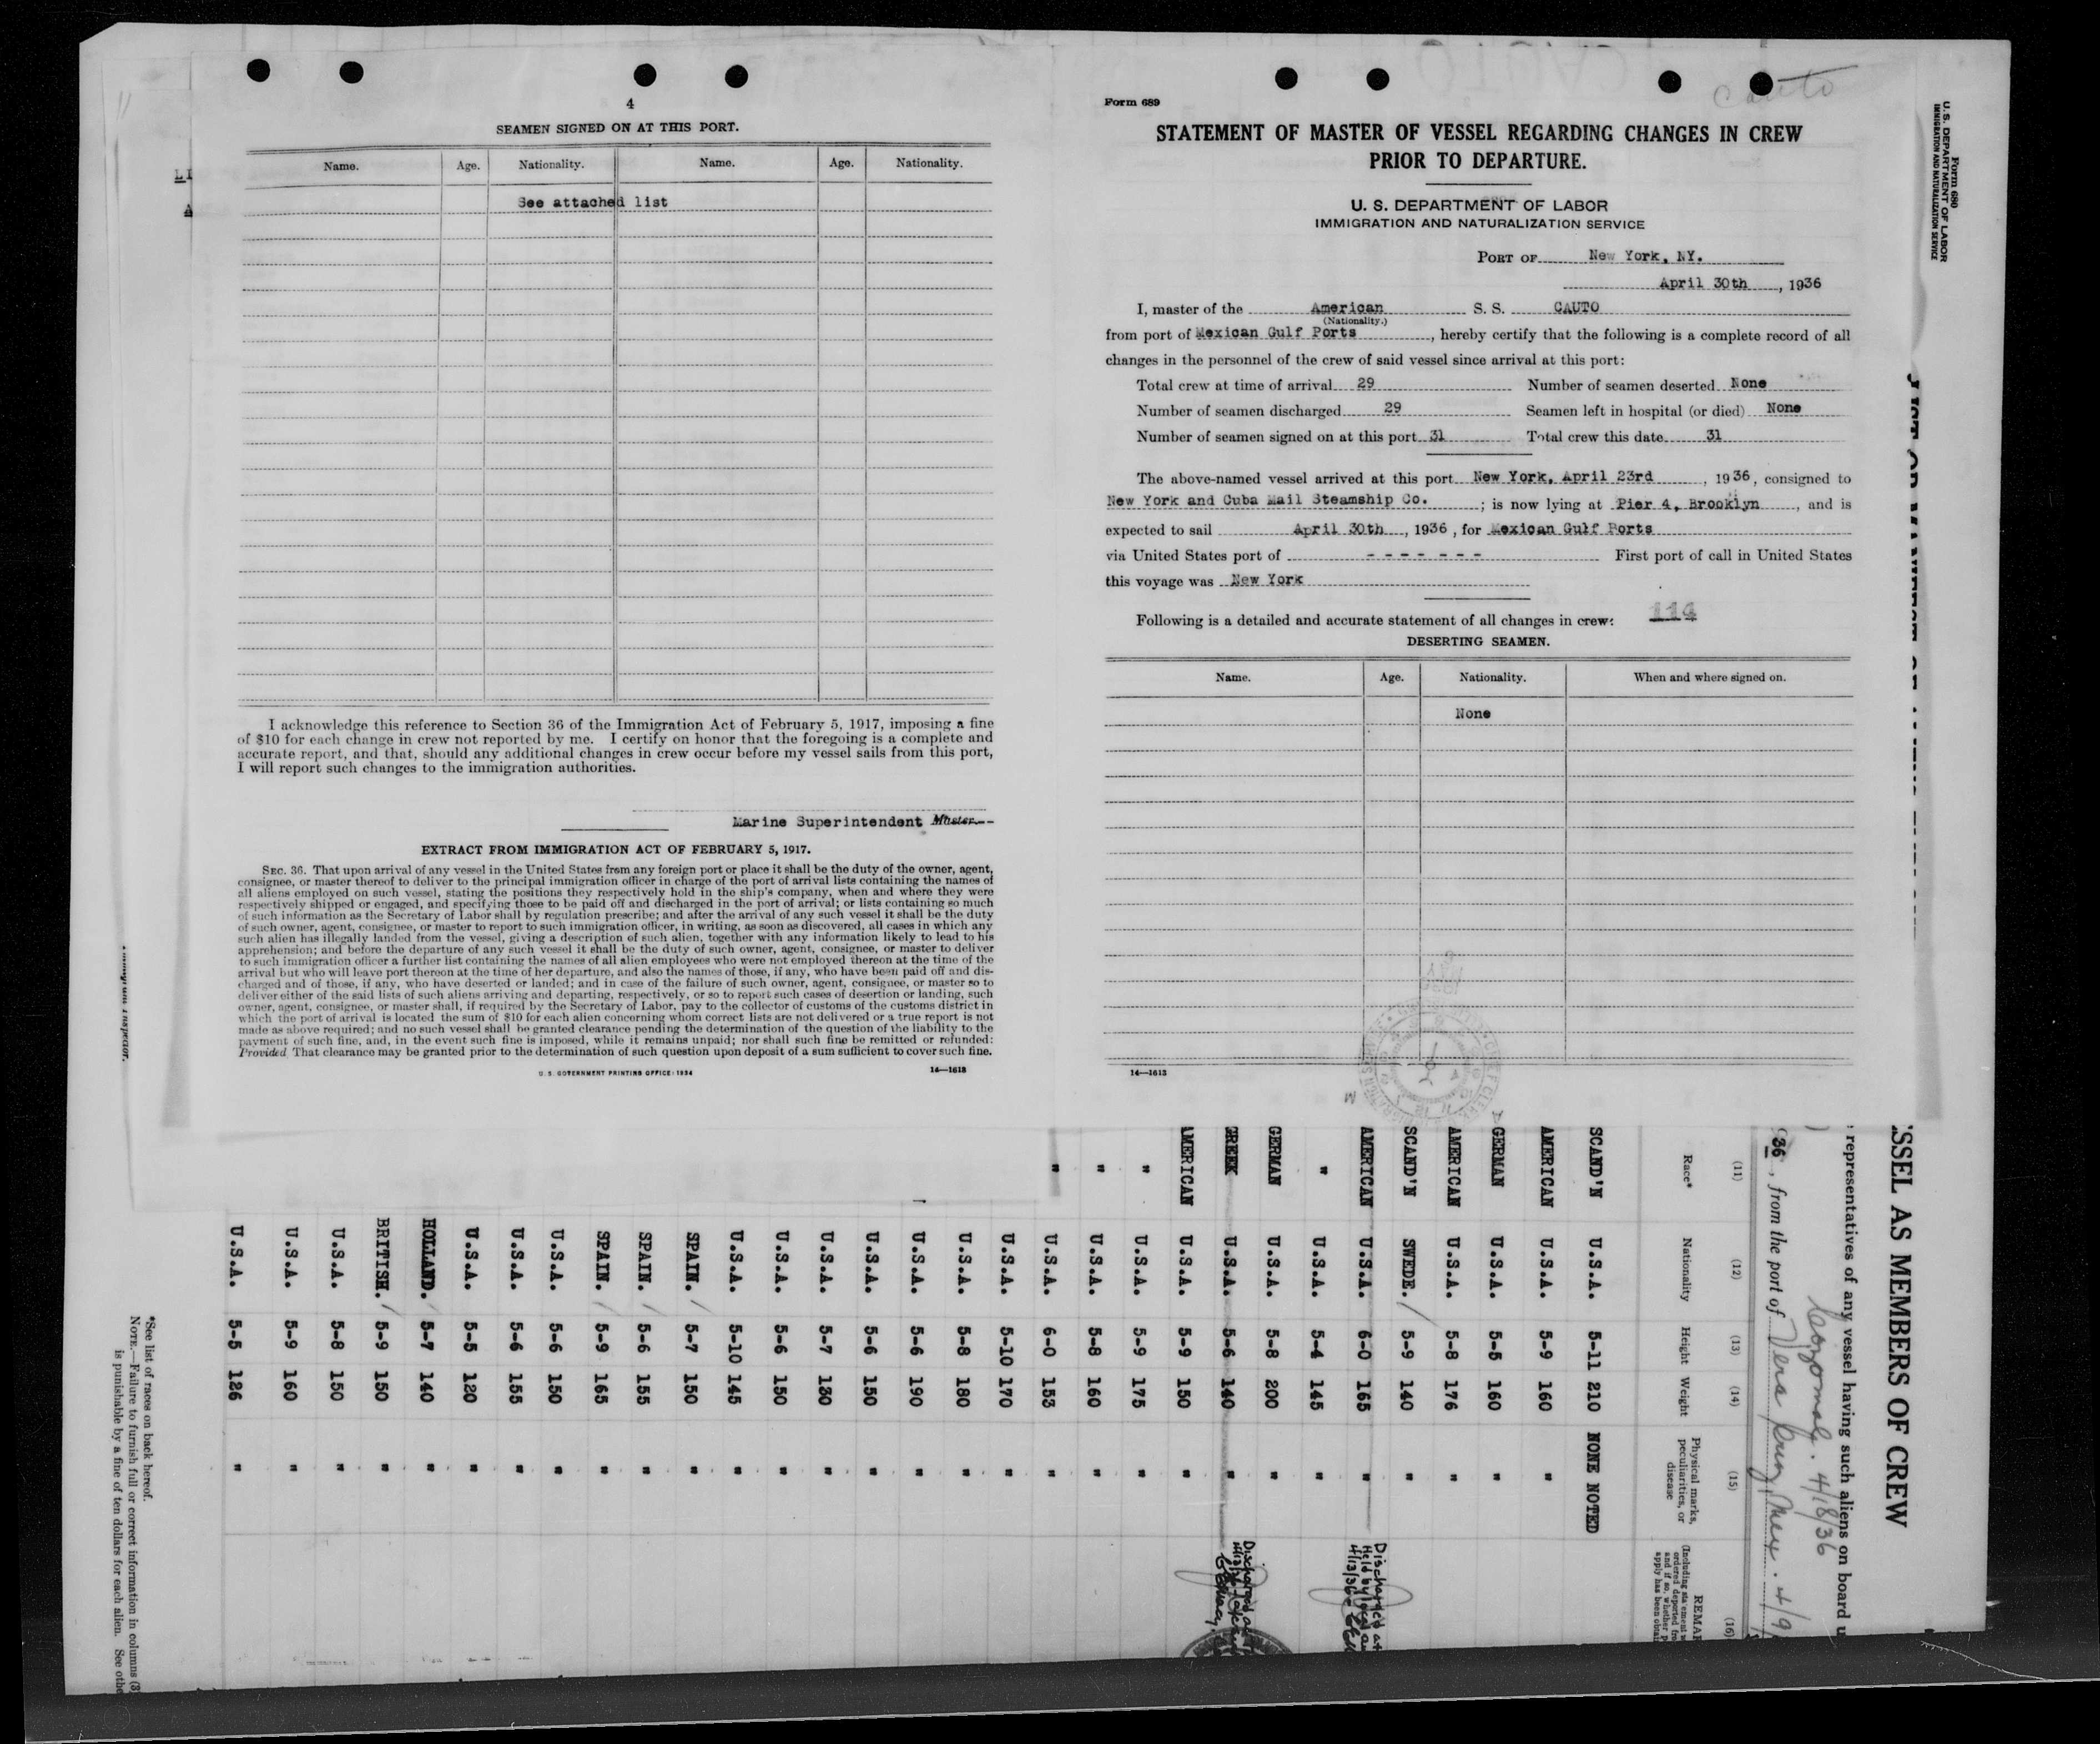 4
SEAMEN SIGNED ON AT THIS PORT.
Name. Age. Nationality. Name. Age. Nationality.
See attached list
I acknowledge this reference to Section 36 of the Immigration Act of February 5, 1917, imposing a fine
of $10 for each change in crew not reported by me. I certify on honor that the foregoing is a complete and
accurate report, and that, should any additional changes in crew occur before my vessel sails from this port,
I will report such changes to the immigration authorities.
Marine Superintendent Master
EXTRACT FROM IMMIGRATION ACT OF FEBRUARY 5, 1917.
SEC. 36. That upon arrival of any vessel in the United States from any foreign port or place it shall be the duty of the owner, agent,
consignee, or master thereof to deliver to the principal immigration officer in charge of the port of arrival lists containing the names of
all aliens employed on such vessel, stating the positions they respectively hold in the ship's company, when and where they were
respectively shipped or engaged, and specifying those to be paid off and discharged in the port of arrival; or lists containing so much
of such information as the Secretary of Labor shall by regulation prescribe; and after the arrival of any such vessel it shall be the duty
of such owner, agent, consignee, or master to report to such immigration officer, in writing, as soon as discovered, all cases in which any
such alien has illegally landed from the vessel, giving a description of such alien, together with any information likely to lead to his
apprehension; and before the departure of any such vessel it shall be the duty of such owner, agent, consignee, or master to deliver
to such immigration officer a further list containing the names of all alien employees who were not employed thereon at the time of the
arrival but who will leave port thereon at the time of her departure, and also the names of those, if any, who have been paid off and dis-
charged and of those, if any, who have deserted or landed; and in case of the failure of such owner, agent, consignee, or master so to
deliver either of the said lists of such aliens arriving and departing, respectively, or so to report such cases of desertion or landing, such
owner, agent, consignee, or master shall, if required by the Secretary of Labor, pay to the collector of customs of the customs district in
which the port of arrival is located the sum of $10 for each alien concerning whom correct lists are not delivered or a true report is not
made as above required; and no such vessel shall be granted clearance pending the determination of the question of the liability to the
payment of such fine, and, in the event such fine is imposed, while it remains unpaid; nor shall such fine be remitted or refunded:
Provided That clearance may be granted prior to the determination of such question upon deposit of a sum sufficient to cover such fine.
U. S. GOVERNMENT PRINTING OFFICE: 1934 14—1613
Form 689
Cauto
STATEMENT OF MASTER OF VESSEL REGARDING CHANGES IN CREW
PRIOR TO DEPARTURE.
U. S. DEPARTMENT OF LABOR
IMMIGRATION AND NATURALIZATION SERVICE
PORT OF New York, NY.
April 30th, 1936
I, master of the American S. S. CAUTO
(Nationality.)
from port of Mexican Gulf Ports, hereby certify that the following is a complete record of all
changes in the personnel of the crew of said vessel since arrival at this port:
Total crew at time of arrival 29 Number of seamen deserted None
Number of seamen discharged 29 Seamen left in hospital (or died) None
Number of seamen signed on at this port 31 Total crew this date 31
The above-named vessel arrived at this port New York, April 23rd, 1936, consigned to
New York and Cuba Mail Steamship Co.; is now lying at Pier 4, Brooklyn, and is
expected to sail April 30th, 1936, for Mexican Gulf Ports
via United States port of - - - - - - - First port of call in United States
this voyage was New York
Following is a detailed and accurate statement of all changes in crew: 114
DESERTING SEAMEN.
Name. Age. Nationality. When and where signed on.
None
14—1613
Form 680
U. S. DEPARTMENT OF LABOR
IMMIGRATION AND NATURALIZATION SERVICE
SSEL AS MEMBERS OF CREW
representatives of any vessel having such aliens on board u
4/18/36
36, from the port of Vera Cruz, Mex. 4/9
(11) (12) (13) (14) (15) (16)
Race* Nationality Height Weight Physical marks, peculiarities, or disease REMAR
SCAND'N U.S.A. 5-11 210 NONE NOTED
AMERICAN U.S.A. 5-9 160 "
GERMAN U.S.A. 5-5 160 "
AMERICAN U.S.A. 5-8 176 "
SCAND'N SWEDE. 5-9 140 "
AMERICAN U.S.A. 6-0 165 " Discharged at
" U.S.A. 5-4 145 "
GERMAN U.S.A. 5-8 200 "
GREEK U.S.A. 5-6 140 "
AMERICAN U.S.A. 5-9 150 "
" U.S.A. 5-9 175 "
" U.S.A. 5-8 160 "
" U.S.A. 6-0 153 "
U.S.A. 5-10 170 "
U.S.A. 5-8 180 "
U.S.A. 5-6 190 "
U.S.A. 5-6 150 "
U.S.A. 5-7 130 "
U.S.A. 5-6 150 "
U.S.A. 5-10 145 "
SPAIN. 5-7 150 "
SPAIN. 5-6 155 "
SPAIN. 5-9 165 "
U.S.A. 5-6 150 "
U.S.A. 5-6 155 "
U.S.A. 5-5 120 "
HOLLAND. 5-7 140 "
BRITISH. 5-9 150 "
U.S.A. 5-8 150 "
U.S.A. 5-9 160 "
U.S.A. 5-5 126 "
*See list of races on back hereof.
NOTE.—Failure to furnish full or correct information in columns (3)
is punishable by a fine of ten dollars for each alien. See othe
Immigrant Inspector.